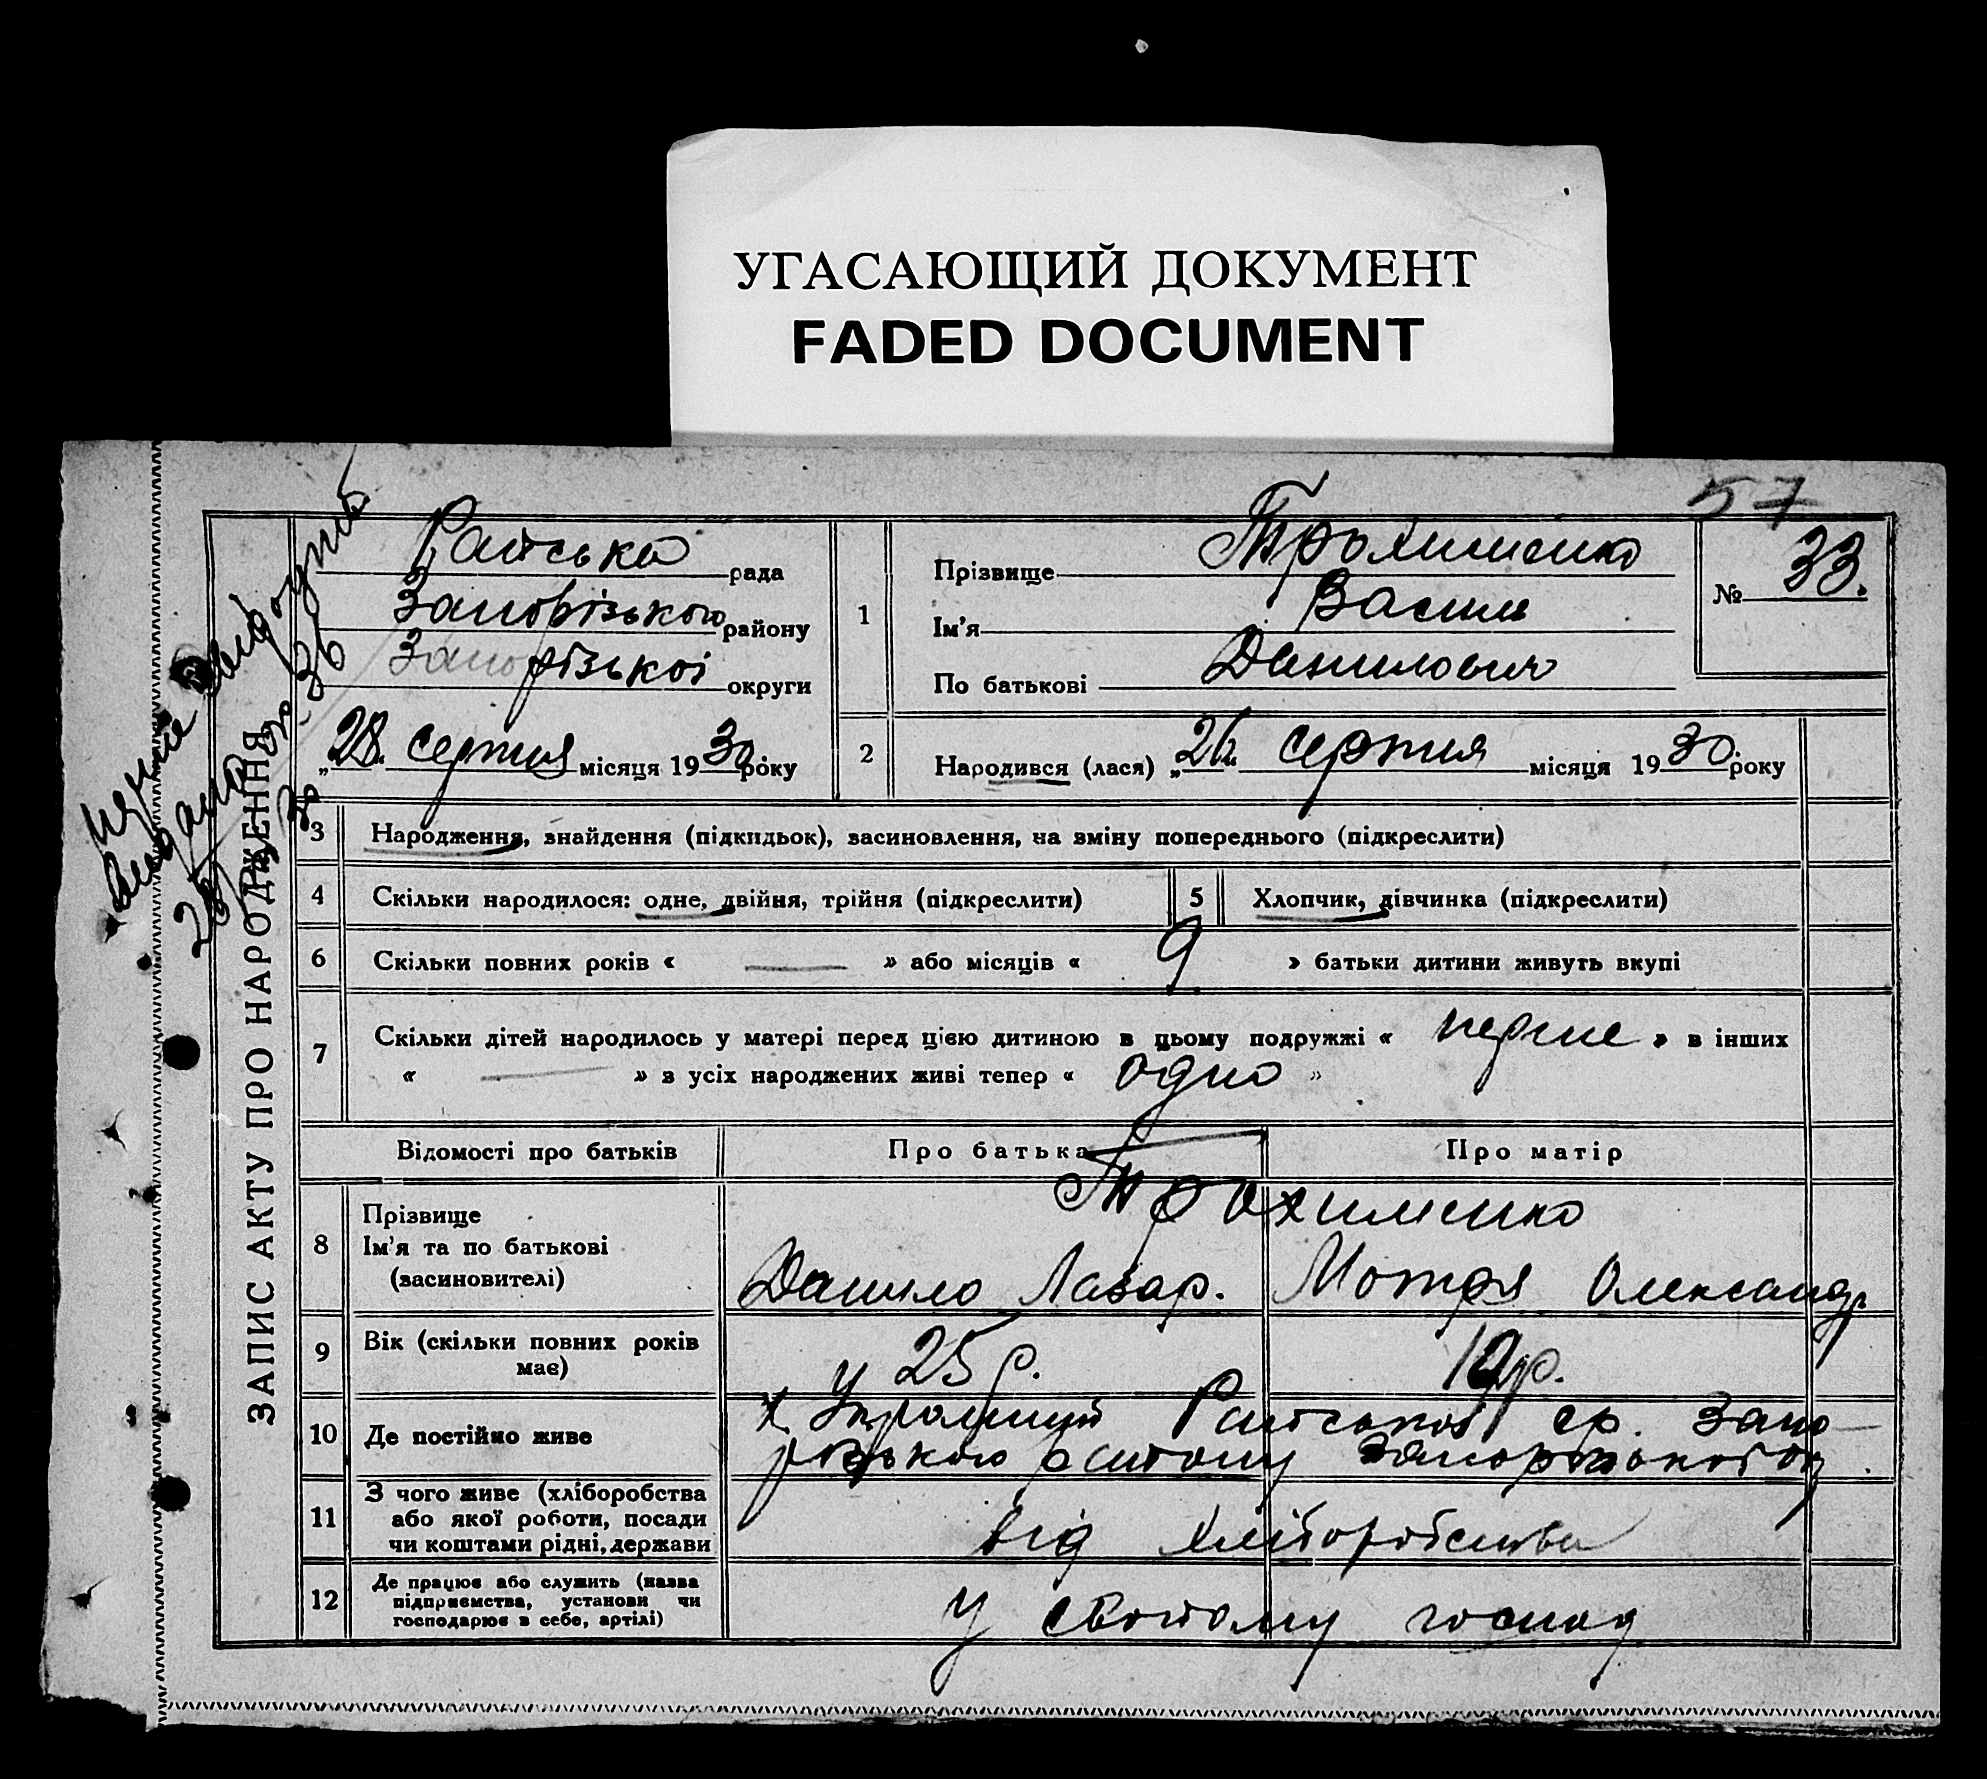 УГАСАЮЩИЙ ДОКУМЕНТ
FADED DOCUMENT
57
ЗАПИС АКТУ ПРО НАРОДЖЕННЯ
Раїська рада
Запорізького району
Запорізької округи
„28" серпня місяця 1930 року
1 Прізвище Трохименко
Ім'я Василь
По батькові Данилович
№ 33.
2 Народився (лася) „26" серпня місяця 1930. року
3 Народження, знайдення (підкидьок), засиновлення, на зміну попереднього (підкреслити)
4 Скільки народилося: одне, двійня, трійня (підкреслити) 5 Хлопчик, дівчинка (підкреслити)
6 Скільки повних років « — » або місяців « 9 » батьки дитини живуть вкупі
7 Скільки дітей народилось у матері перед цією дитиною в цьому подружжі « перше » в інших
« — » з усіх народжених живі тепер « одно »
Відомості про батьків Про батька Про матір
8 Прізвище
Ім'я та по батькові
(засиновителі)
Трохименко
Данило Лазар. Мотря Олександ.
9 Вік (скільки повних років
має)
25 р. 19 р.
10 Де постійно живе
х. Раїської ср. Запо
різького району Запорізької ок.
11 З чого живе (хліборобства
або якої роботи, посади
чи коштами рідні, держави
від хліборобства
12 Де працює або служить (назва
підприємства, установи чи
господарює в себе, артілі)
У своєму господ